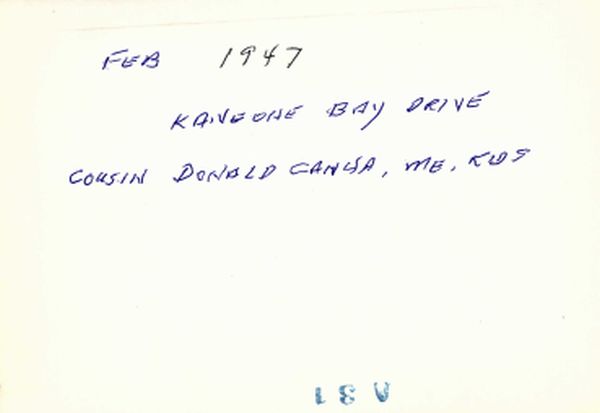 FEB 1947
KANEOHE BAY DRIVE
COUSIN DONALD CANHA, ME, KIDS